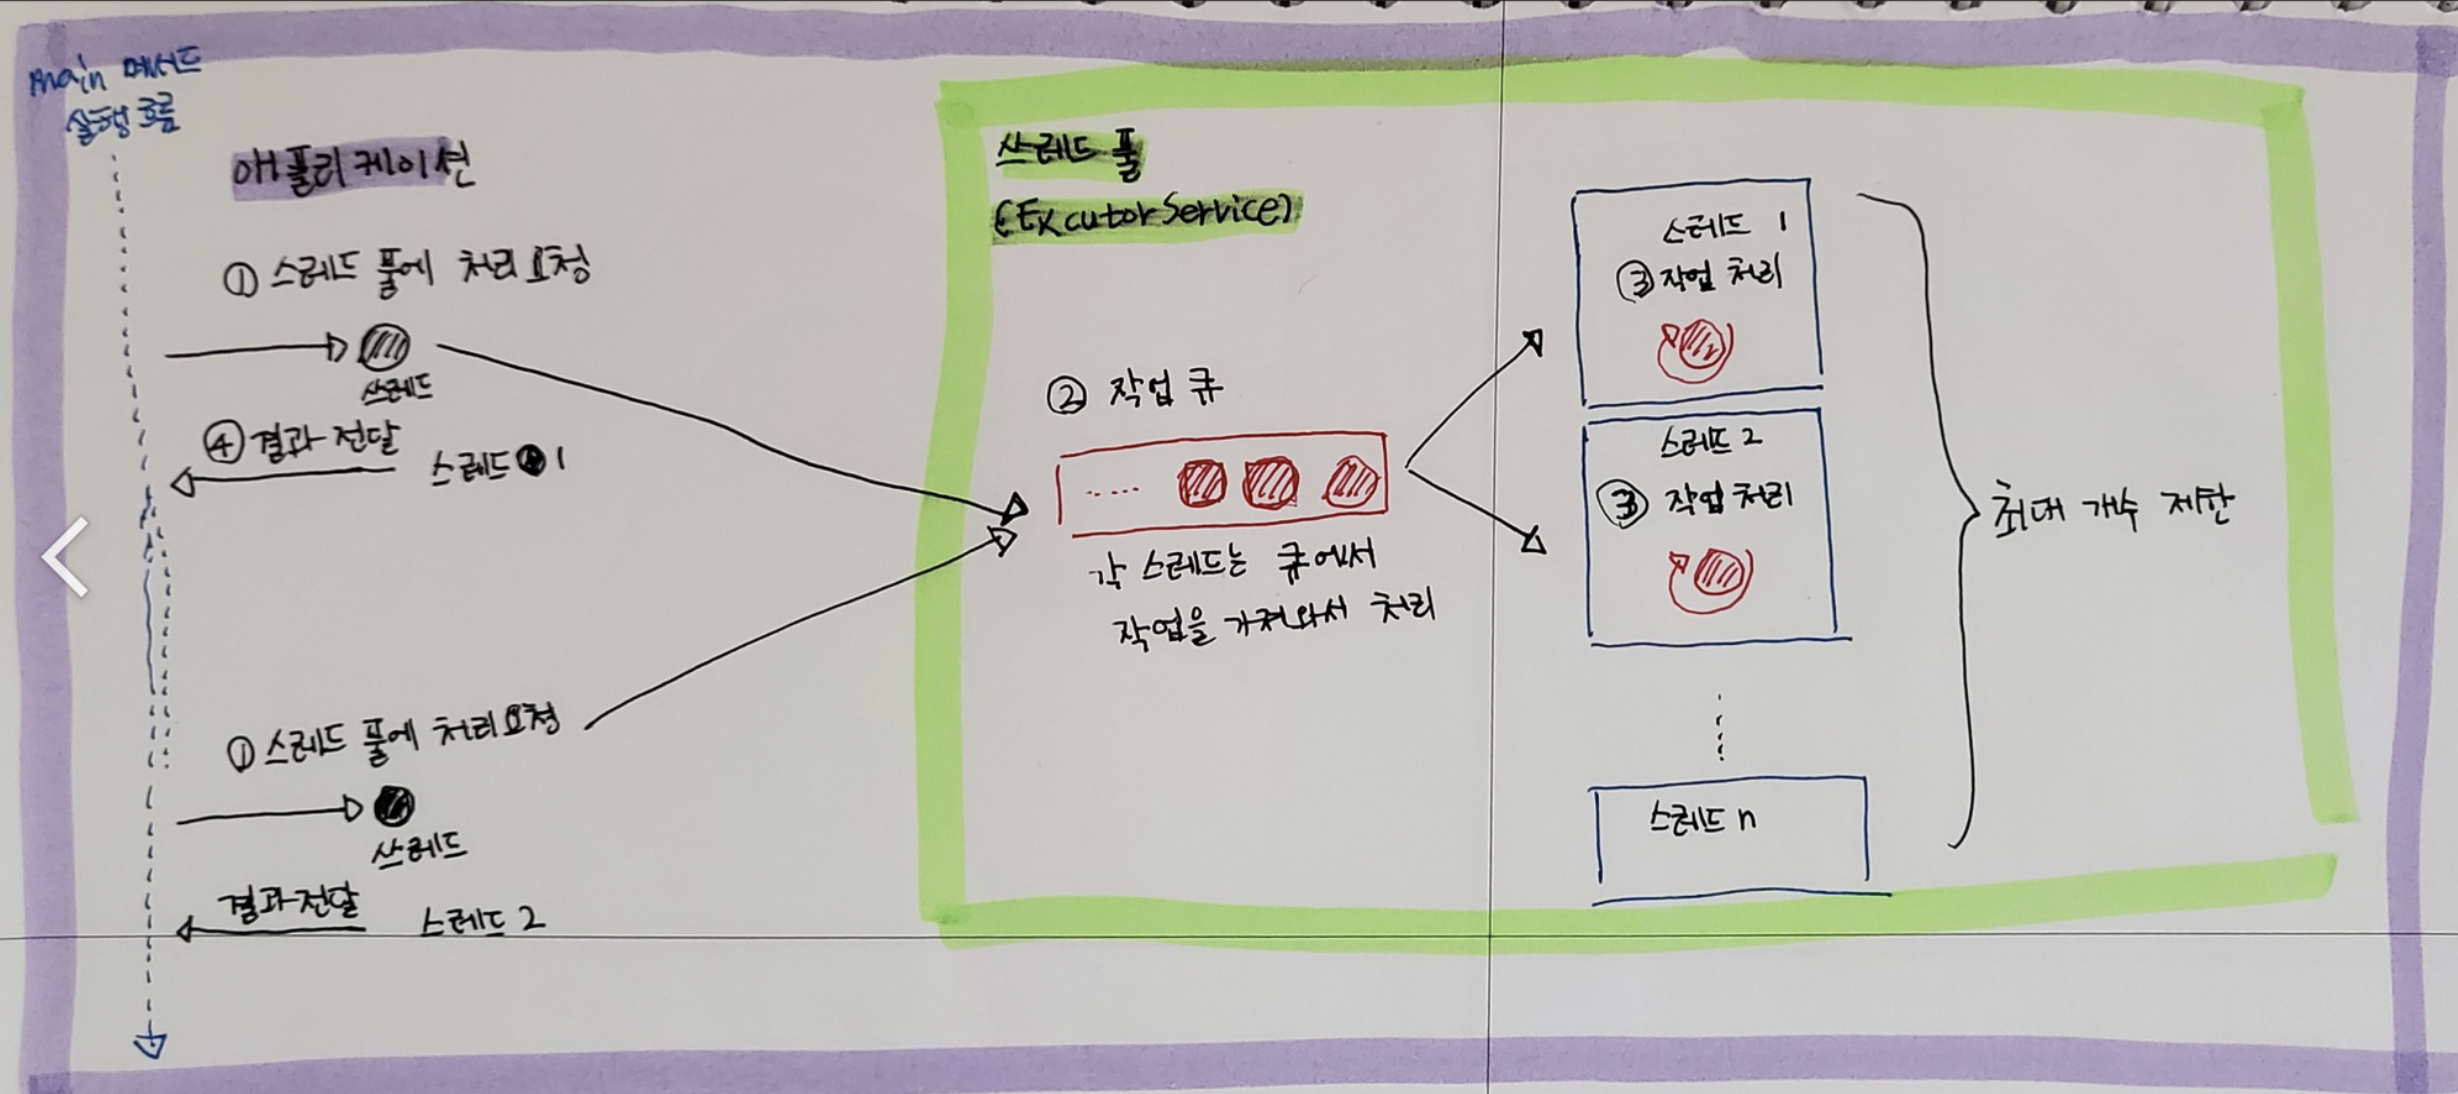 main 메서드
실행 흐름
애플리케이션
① 스레드 풀에 처리 요청
쓰레드
④ 결과 전달
스레드 1
① 스레드 풀에 처리 요청
쓰레드
결과 전달
스레드 2
쓰레드 풀
(ExcutorService)
② 작업 큐
......
각 스레드는 큐에서
작업을 가져와서 처리
스레드 1
③ 작업 처리
스레드 2
③ 작업 처리
스레드 n
최대 개수 제한